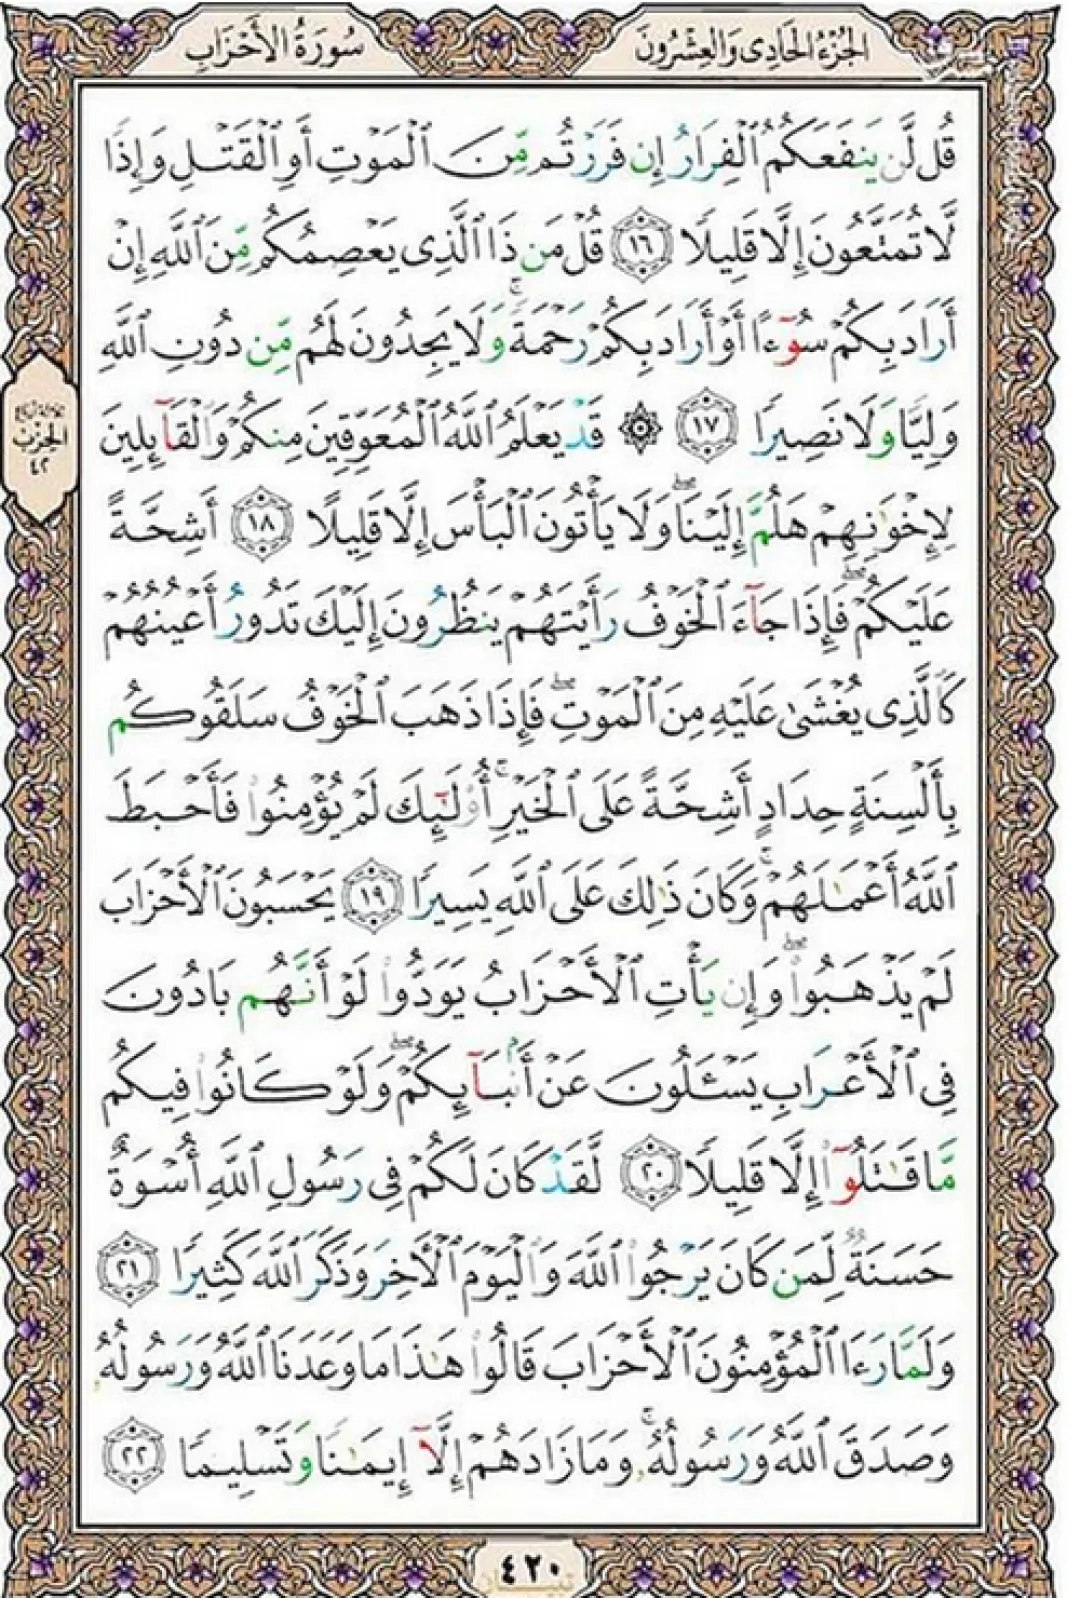 الجُزْءُ الحَادِى وَالعِشْرُونَ
سُورَةُ الأَحْزَابِ
قُل لَّن يَنفَعَكُمُ ٱلْفِرَارُ إِن فَرَرْتُم مِّنَ ٱلْمَوْتِ أَوِ ٱلْقَتْلِ وَإِذًا
لَّا تُمَتَّعُونَ إِلَّا قَلِيلًا ١٦ قُلْ مَن ذَا ٱلَّذِى يَعْصِمُكُم مِّنَ ٱللَّهِ إِنْ
أَرَادَ بِكُمْ سُوٓءًا أَوْ أَرَادَ بِكُمْ رَحْمَةً ۚ وَلَا يَجِدُونَ لَهُم مِّن دُونِ ٱللَّهِ
وَلِيًّا وَلَا نَصِيرًا ١٧ ۞ قَدْ يَعْلَمُ ٱللَّهُ ٱلْمُعَوِّقِينَ مِنكُمْ وَٱلْقَآئِلِينَ
لِإِخْوَٰنِهِمْ هَلُمَّ إِلَيْنَا ۖ وَلَا يَأْتُونَ ٱلْبَأْسَ إِلَّا قَلِيلًا ١٨ أَشِحَّةً
عَلَيْكُمْ ۖ فَإِذَا جَآءَ ٱلْخَوْفُ رَأَيْتَهُمْ يَنظُرُونَ إِلَيْكَ تَدُورُ أَعْيُنُهُمْ
كَٱلَّذِى يُغْشَىٰ عَلَيْهِ مِنَ ٱلْمَوْتِ ۖ فَإِذَا ذَهَبَ ٱلْخَوْفُ سَلَقُوكُم
بِأَلْسِنَةٍ حِدَادٍ أَشِحَّةً عَلَى ٱلْخَيْرِ ۚ أُو۟لَٰٓئِكَ لَمْ يُؤْمِنُوا۟ فَأَحْبَطَ
ٱللَّهُ أَعْمَٰلَهُمْ ۚ وَكَانَ ذَٰلِكَ عَلَى ٱللَّهِ يَسِيرًا ١٩ يَحْسَبُونَ ٱلْأَحْزَابَ
لَمْ يَذْهَبُوا۟ ۖ وَإِن يَأْتِ ٱلْأَحْزَابُ يَوَدُّوا۟ لَوْ أَنَّهُم بَادُونَ
فِى ٱلْأَعْرَابِ يَسْـَٔلُونَ عَنْ أَنۢبَآئِكُمْ ۖ وَلَوْ كَانُوا۟ فِيكُم
مَّا قَٰتَلُوٓا۟ إِلَّا قَلِيلًا ٢٠ لَّقَدْ كَانَ لَكُمْ فِى رَسُولِ ٱللَّهِ أُسْوَةٌ
حَسَنَةٌ لِّمَن كَانَ يَرْجُوا۟ ٱللَّهَ وَٱلْيَوْمَ ٱلْأَخِرَ وَذَكَرَ ٱللَّهَ كَثِيرًا ٢١
وَلَمَّا رَءَا ٱلْمُؤْمِنُونَ ٱلْأَحْزَابَ قَالُوا۟ هَٰذَا مَا وَعَدَنَا ٱللَّهُ وَرَسُولُهُۥ
وَصَدَقَ ٱللَّهُ وَرَسُولُهُۥ ۚ وَمَا زَادَهُمْ إِلَّآ إِيمَٰنًا وَتَسْلِيمًا ٢٢
ثلاثة أرباع
الحِزْب
٤٢
٤٢٠
تبيان